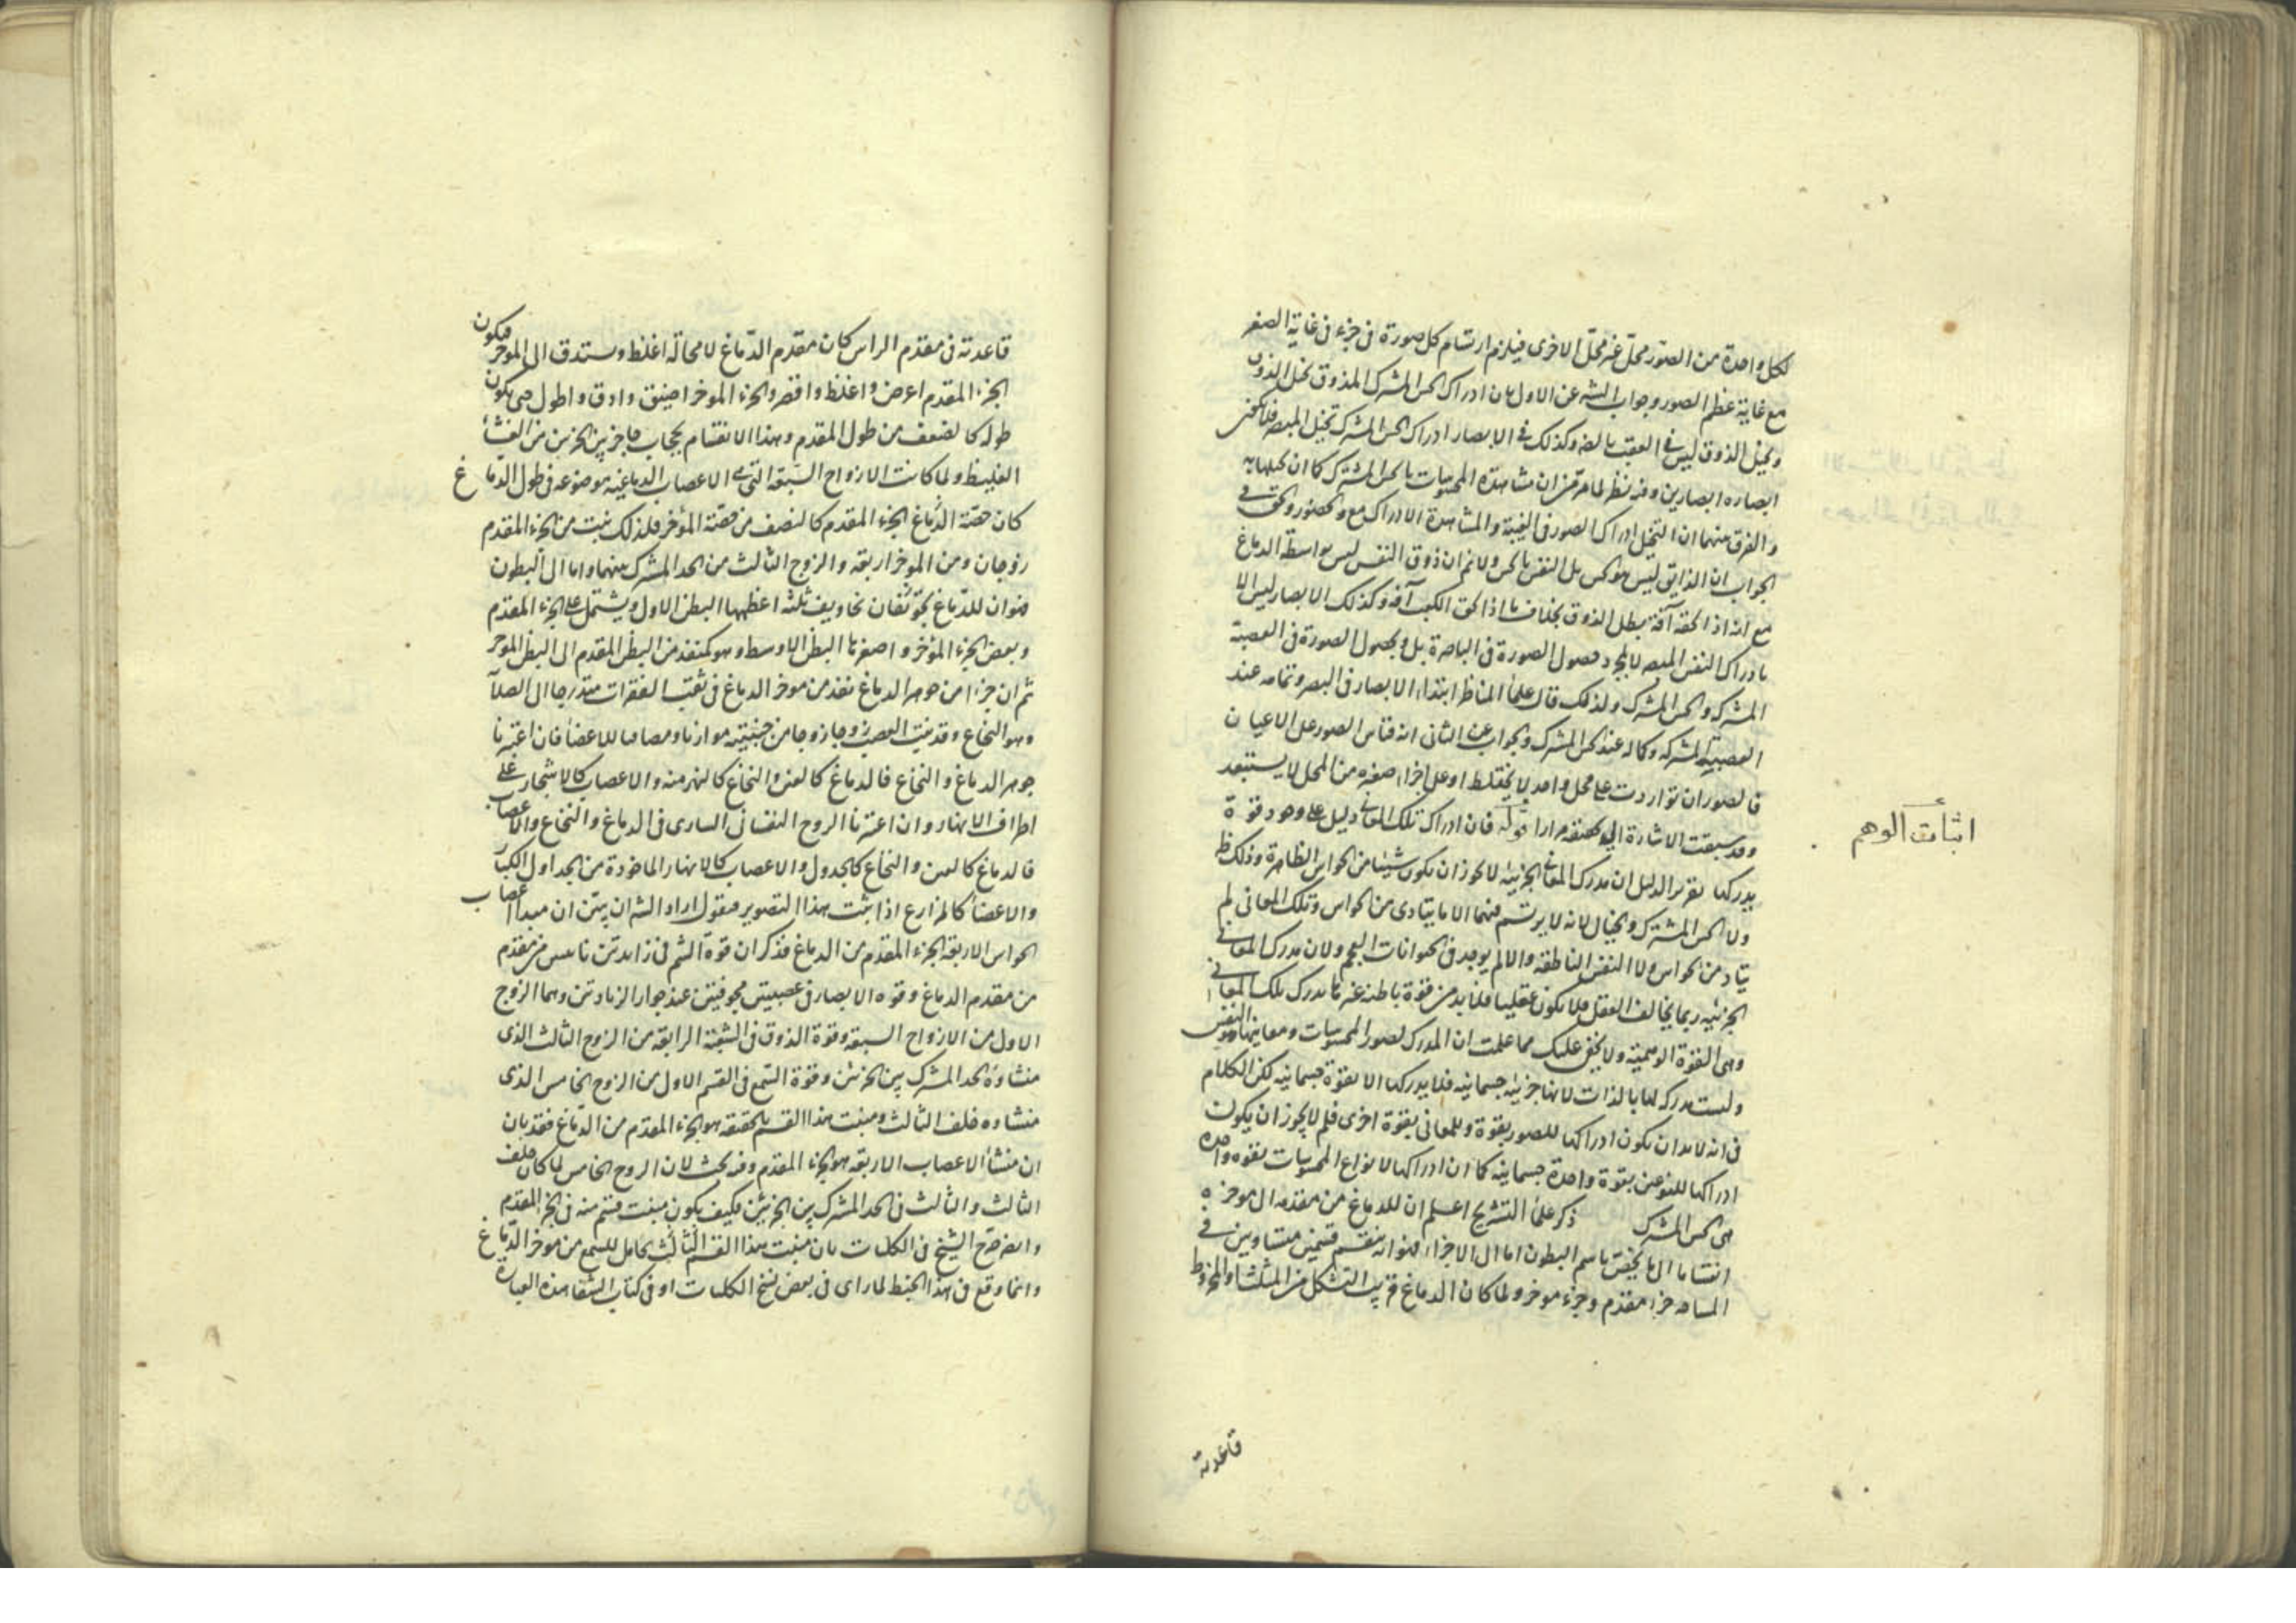 لكل واحدة من الصور محل غير محل الاخرى فيلزم ارتسام كل صورة فى جزء فى غاية الصغر
مع غاية عظم الصور وجواب الشه عن الاول بان ادراك الحس المشترك المذوق تخيل الذوق
وتخيل الذوق ليس فى العقب بالضه وكذلك فى الابصار ادراك الحس المشترك تخيل المبصر فلا يكون
ابصاره ابصارين وفيه نظر لما مر من ان مشاهدة المحسوسات بالحس المشترك كما ان تخيلها به
والفرق بينهما ان التخيل ادراك الصور فى الغيبة والمشاهدة الادراك مع الحضور والحق فى
الجواب ان الذايق ليس هو الحس بل النفس بالحس ولا نم ان ذوق النفس ليس بواسطة الدماغ
مع انه اذا لحقه آفة يبطل الذوق بخلاف ما اذا لحق الكعب آفة وكذلك الابصار ليس الا
بادراك النفس المبصر لا لمجرد حصول الصورة فى الباصرة بل ولحصول الصورة فى العصبة
المشتركة والحس المشترك ولذلك قال علماء المناظر ابتداء الابصار فى البصر وتمامه عند
العصبة المشتركة وكماله عند الحس المشترك والجواب عن الثانى انه قاس الصور على الاعيان
فالصور ان تواردت على محل واحد لا يختلط او على اجزاء صغيرة من المحل لا يستبعد
وقد سبقت الاشارة اليه مرارا قوله فان ادراك تلك المعانى دليل على وجود قوة
يدركها تقرير الدليل ان مدرك المعانى الجزئية لا يجوز ان يكون شيئا من الحواس الظاهرة وذلك ظ
ولا الحس المشترك والخيال لانه لا يرتسم فيهما الا ما يتادى من الحواس وتلك المعانى لم
يتاد من الحواس ولا النفس الناطقة والا لم يوجد فى الحيوانات العجم ولان مدرك المعانى
الجزئية ربما يخالف العقل فلا يكون عقليا فلا بد من قوة باطنة غيرها يدرك تلك المعانى
وهى القوة الوهمية ولا يخفى عليك مما علمت ان المدرك لصور المحسوسات ومعانيها هو النفس
وليست مدركة لها بالذات لانها جزئية جسمانية فلا يدركها الا بقوة جسمانية لكن الكلام
فى انه لابد ان يكون ادراكها للصور بقوة وللمعانى بقوة اخرى فلم لا يجوز ان يكون
ادراكها للنوعين بقوة واحدة جسمانية كما ان ادراكها لانواع المحسوسات بقوة واحدة
هى الحس المشترك ذكر علماء التشريح اعلم ان للدماغ من مقدمه الى موخره
انقساما الى ما يختص باسم البطون اما الى الاجزاء فهو انه منقسم قسمين متساويين فى
المساحة جزء مقدم وجزء موخر ولما كان الدماغ قريب التشكل من المثلث والمخروط
اثبات الوهم
قاعدته
قاعدته فى مقدم الراس كان مقدم الدماغ لا محالة اغلظ ويستدق الى الموخر فيكون
الجزء المقدم اعرض واغلظ واقصر والجزء الموخر اضيق وادق واطول حتى يكون
طوله كالضعف من طول المقدم وهذا الانقسام بحجاب حاجز بين الجزئين من الغشاء
الغليظ ولما كانت الازواج السبعة التى هى الاعصاب الدماغية موضوعة فى طول الدماغ
كان حصة الدماغ الجزء المقدم كالنصف من حصة المؤخر فلذلك نبتت من الجزء المقدم
زوجان ومن الموخر اربعة والزوج الثالث من الحد المشترك بينهما واما الى البطون
فهو ان للدماغ تجاويف ثلثة اعظمها البطن الاول ويشتمل على الجزء المقدم
وبعض الجزء المؤخر واصغرها البطن الاوسط وهو كمنفذ من البطن المقدم الى البطن الموخر
ثم ان جزءا من جوهر الدماغ نفذ من موخر الدماغ فى ثقب الفقرات متدرجا الى الصلابة
وهو النخاع وقد نبت العصب زوجا زوجا من جنبيته موازيا ومصاقبا للاعضاء فان اعتبرنا
جوهر الدماغ والنخاع فالدماغ كالعين والنخاع كالنهر منه والاعصاب كالاشجار على
اطراف الانهار وان اعتبرنا الروح النفسانى السارى فى الدماغ والنخاع والاعصاب
فالدماغ كالعين والنخاع كالجدول والاعصاب كالانهار الماخوذة من الجداول الكبار
والاعضاء كالمزارع اذا ثبت هذا التصوير فنقول اراد الشه ان يبين ان مبدا اعصاب
الحواس الاربعة الجزء المقدم من الدماغ فذكر ان قوة الشم فى زائدتين ناتيتين من مقدم
من مقدم الدماغ وقوة الابصار فى عصبتين مجوفتين عند جوار الزائدتين وهما الزوج
الاول من الازواج السبعة وقوة الذوق فى الشعبة الرابعة من الزوج الثالث الذى
منشاؤه الحد المشترك بين الجزئين وقوة السمع فى القسم الاول من الزوج الخامس الذى
منشاؤه خلف الثالث ومنبت هذا القسم بالحقيقة هو الجزء المقدم من الدماغ فقد بان
ان منشا الاعصاب الاربعة هو الجزء المقدم وفيه بحث لان الزوج الخامس لما كان خلف
الثالث والثالث فى الحد المشترك بين الجزئين فكيف يكون منبت قسم منه فى الجزء المقدم
وايضا صرح الشيخ فى الكليات بان منبت هذا القسم الثالث الحامل للسمع من موخر الدماغ
وانما وقع فى هذا الخبط لما راى فى بعض نسخ الكليات او فى كتاب الشفا هذه العبارة